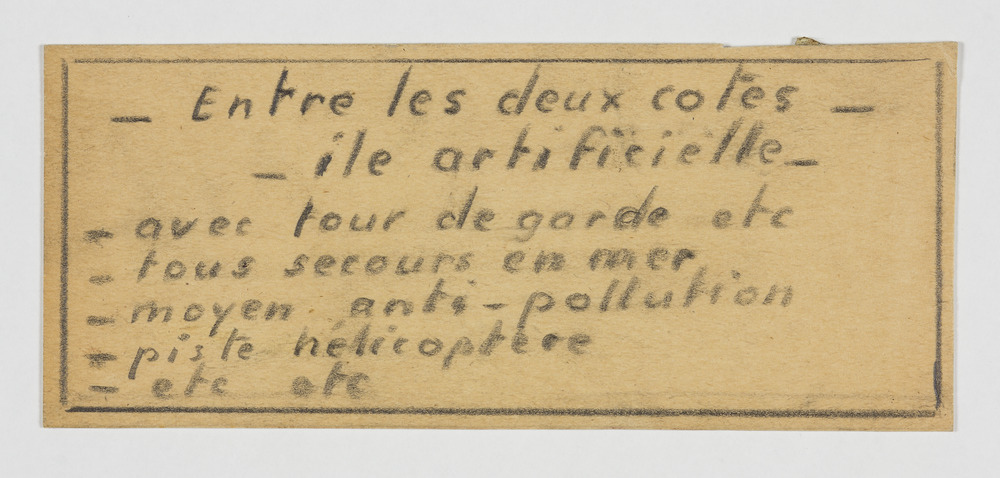 _ Entre les deux cotes _
_ île artificielle _
- avec tour de garde etc
- tous secours en mer
- moyen anti-pollution
- piste hélicoptère
- etc etc